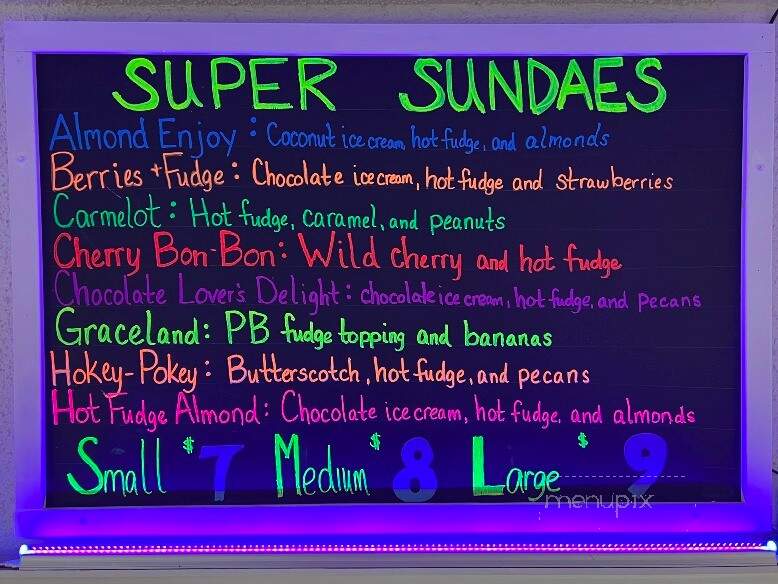 SUPER SUNDAES
Almond Enjoy: Coconut ice cream, hot fudge, and almonds
Berries + Fudge: Chocolate ice cream, hot fudge and strawberries
Carmelot: Hot fudge, caramel, and peanuts
Cherry Bon-Bon: Wild cherry and hot fudge
Chocolate Lover's Delight: chocolate ice cream, hot fudge, and pecans
Graceland: PB fudge topping and bananas
Hokey-Pokey: Butterscotch, hot fudge, and pecans
Hot Fudge Almond: Chocolate ice cream, hot fudge, and almonds
Small $7 Medium $8 Large $9
menupix